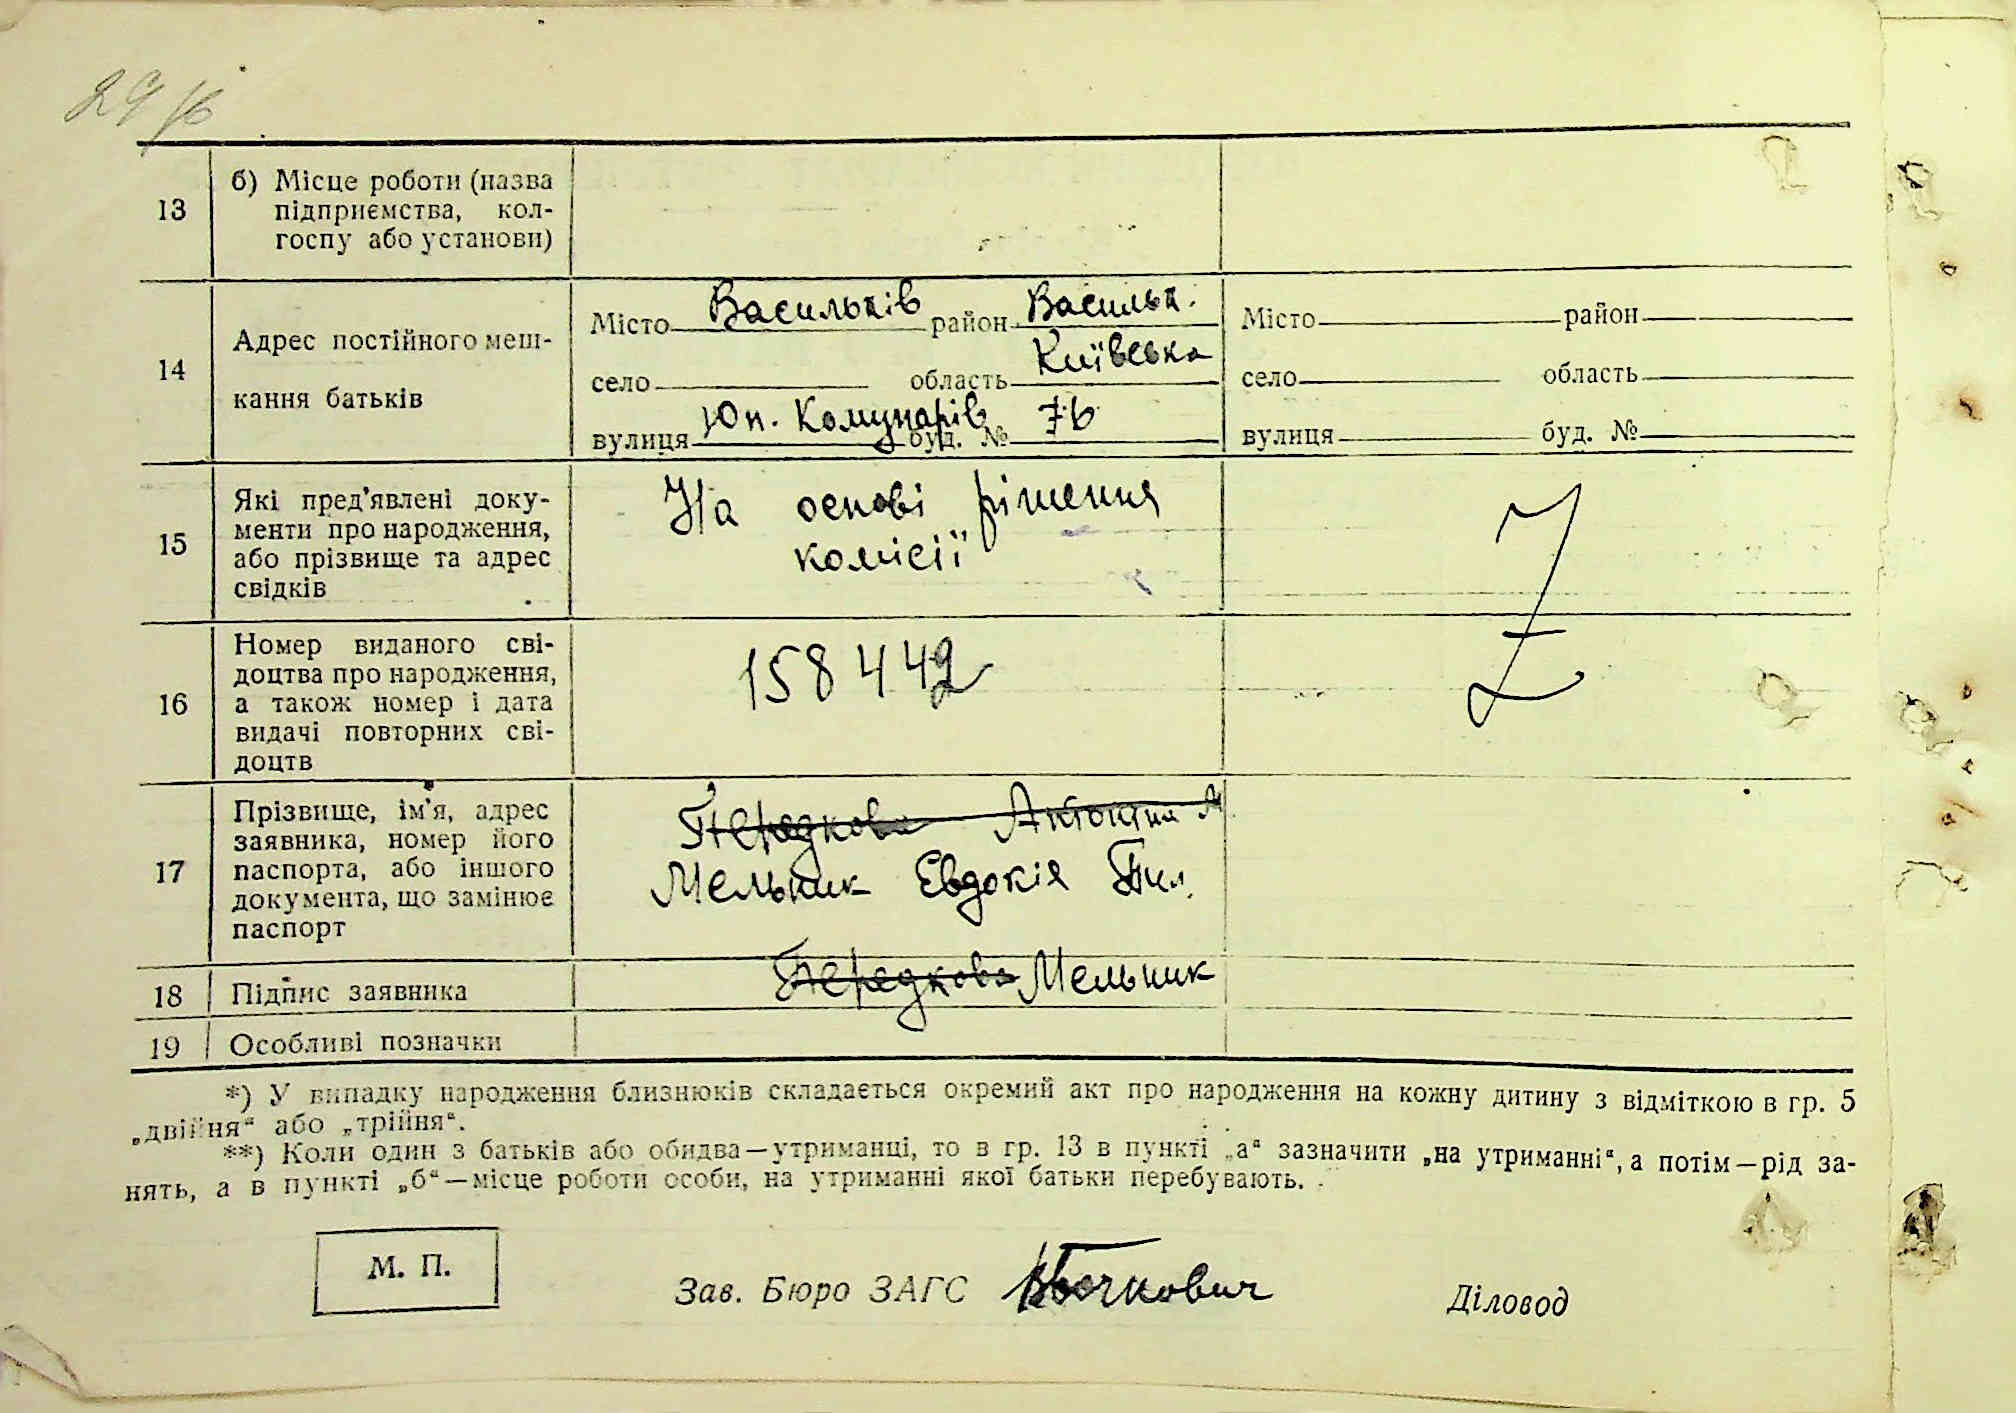 13
б) Місце роботи (назва
підприємства, кол-
госпу або установи)
14
Адрес постійного меш-
кання батьків
Місто Васильків район Васильк.
село область Київська
вулиця Юн. Комунарів буд. № 7б
Місто район
село область
вулиця буд. №
15
Які пред'явлені доку-
менти про народження,
або прізвище та адрес
свідків
На основі рішення
комісії
16
Номер виданого сві-
доцтва про народження,
а також номер і дата
видачі повторних сві-
доцтв
158442
Z
17
Прізвище, ім'я, адрес
заявника, номер його
паспорта, або іншого
документа, що замінює
паспорт
Передкова Антоніна М
Мельник Евдокія Пил.
18 Підпис заявника
Передкова Мельник
19 Особливі позначки
*) У випадку народження близнюків складається окремий акт про народження на кожну дитину з відміткою в гр. 5
„двійня“ або „трійня“.
**) Коли один з батьків або обидва—утриманці, то в гр. 13 в пункті „а“ зазначити „на утриманні“, а потім—рід за-
нять, а в пункті „б“—місце роботи особи, на утриманні якої батьки перебувають.
М. П.
Зав. Бюро ЗАГС Бочкович
Діловод